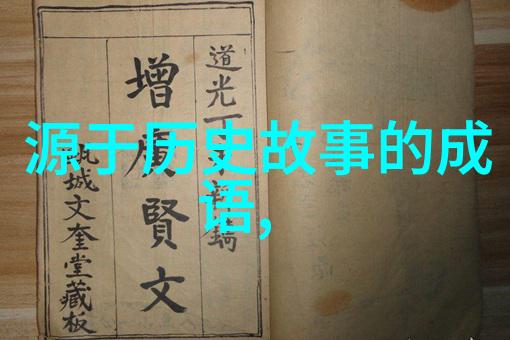 源于历史故事的成
语,
道光
增廣賢文
城文奎堂藏板